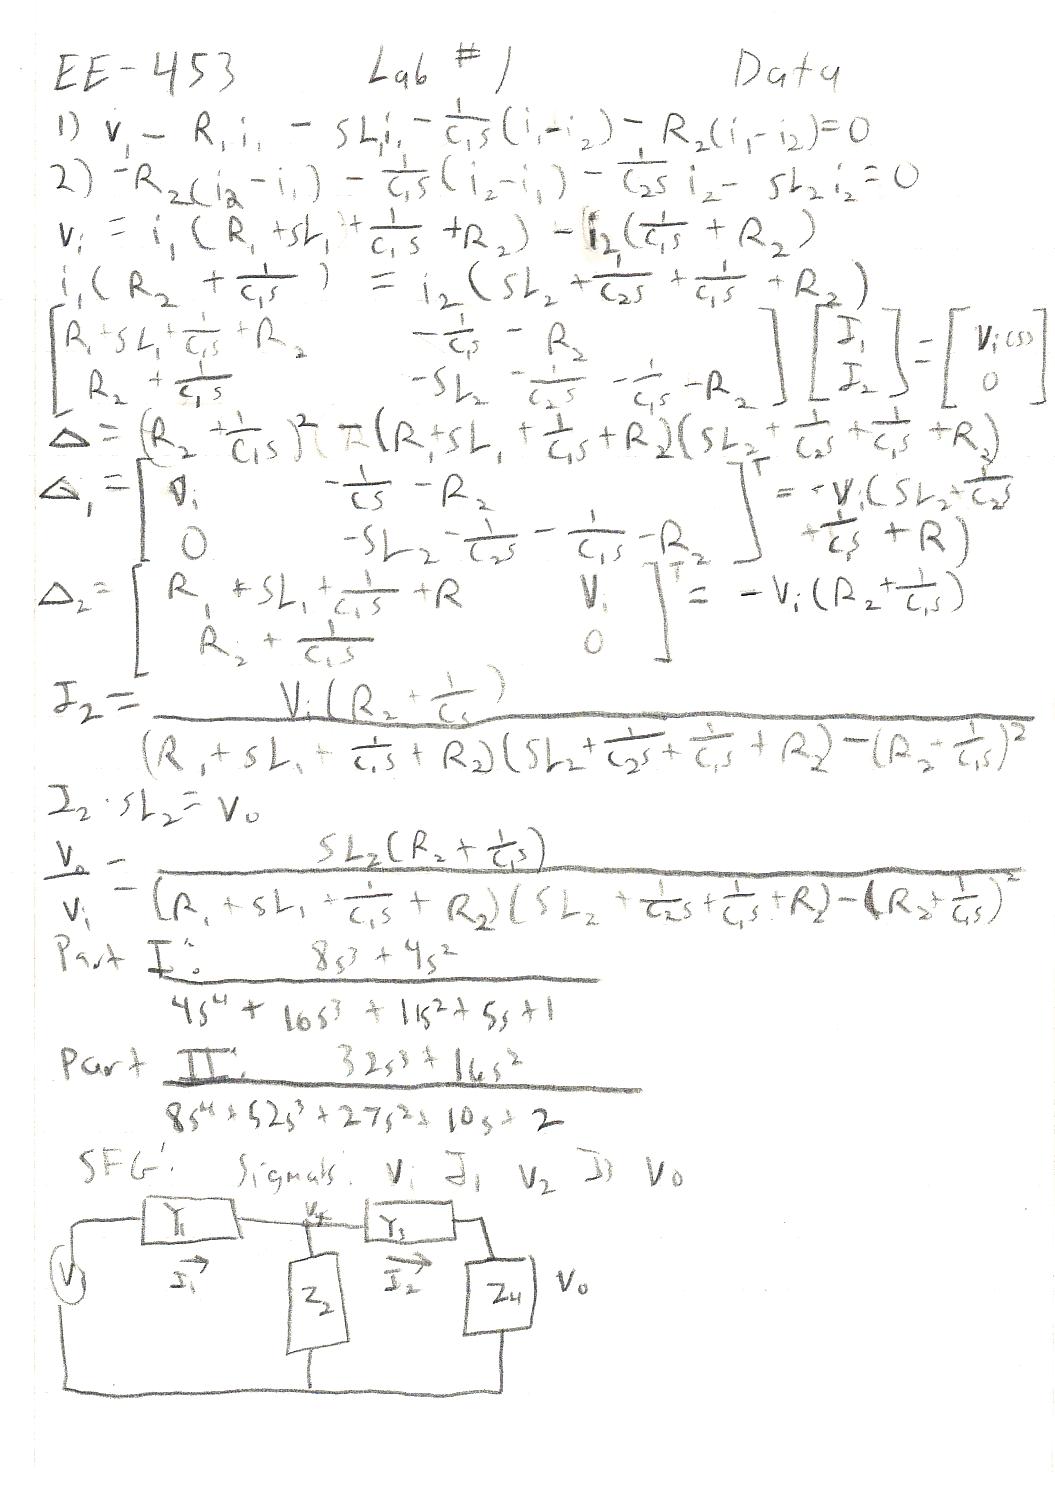 EE-453 Lab #1 Data
1) v₁ - R₁i₁ - sL₁i₁ - 1/C₁s (i₁-i₂) - R₂(i₁-i₂)=0
2) -R₂(i₂-i₁) - 1/C₁s (i₂-i₁) - 1/C₂s i₂ - sL₂i₂=0
Vᵢ = i₁(R₁+sL₁+1/C₁s+R₂) - i₂(1/C₁s + R₂)
i₁(R₂ + 1/C₁s) = i₂(sL₂+1/C₂s+1/C₁s+R₂)
[R₁+sL₁+1/C₁s+R₂ -1/C₁s - R₂] [I₁] = [Vᵢ(s)]
[R₂ + 1/C₁s -sL₂ - 1/C₂s - 1/C₁s - R₂] [I₂] [0]
Δ = (R₂+1/C₁s)² - (R₁+sL₁+1/C₁s+R₂)(sL₂+1/C₂s+1/C₁s+R₂)
Δ₁ = [Vᵢ -1/Cs - R₂]ᵀ = -Vᵢ(sL₂+1/C₂s
[0 -sL₂-1/C₂s-1/C₁s-R₂] +1/C₁s+R)
Δ₂ = [R₁+sL₁+1/C₁s+R Vᵢ]ᵀ = -Vᵢ(R₂+1/C₁s)
[R₂+1/C₁s 0]
I₂ = Vᵢ(R₂+1/Cs)
(R₁+sL₁+1/C₁s+R₂)(sL₂+1/C₂s+1/C₁s+R₂)-(R₂+1/C₁s)²
I₂·sL₂=V₀
V₀/Vᵢ = sL₂(R₂+1/C₁s)
(R₁+sL₁+1/C₁s+R₂)(sL₂+1/C₂s+1/C₁s+R₂)-(R₂+1/C₁s)²
Part I: 8s³+4s²
4s⁴+16s³+11s²+5s+1
Part II: 32s³+16s²
8s⁴+52s³+27s²+10s+2
SFG: Signals: Vᵢ I₁ V₂ I₃ V₀
Y₁ V₂ Y₃
V I₁ Z₂ I₂ Z₄ V₀